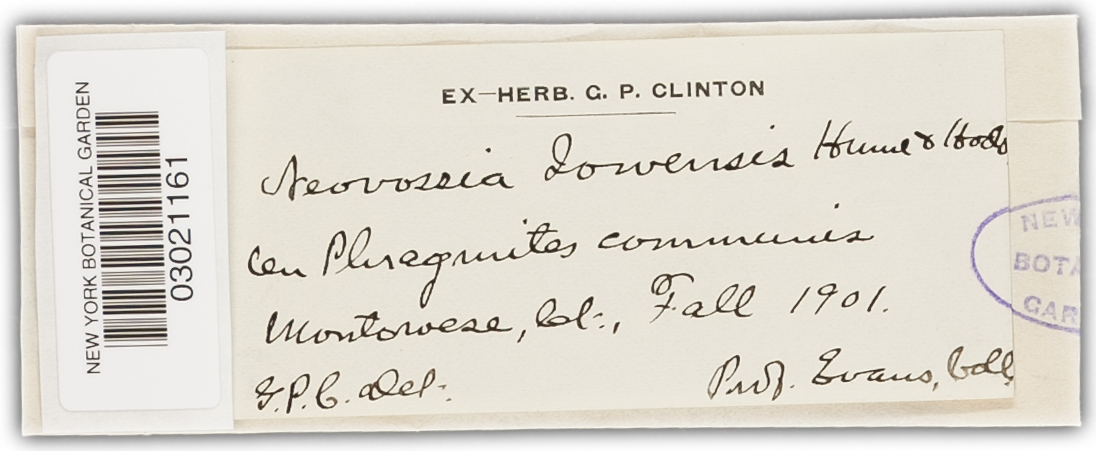 NEW YORK BOTANICAL GARDEN
03021161
EX-HERB. G. P. CLINTON
Neovossia Iowensis Hume & Hods
on Phragmites communis
Montowese, Ct., Fall 1901.
G.P.C. Det. Prof. Evans, Coll
NEW
BOTA
GAR